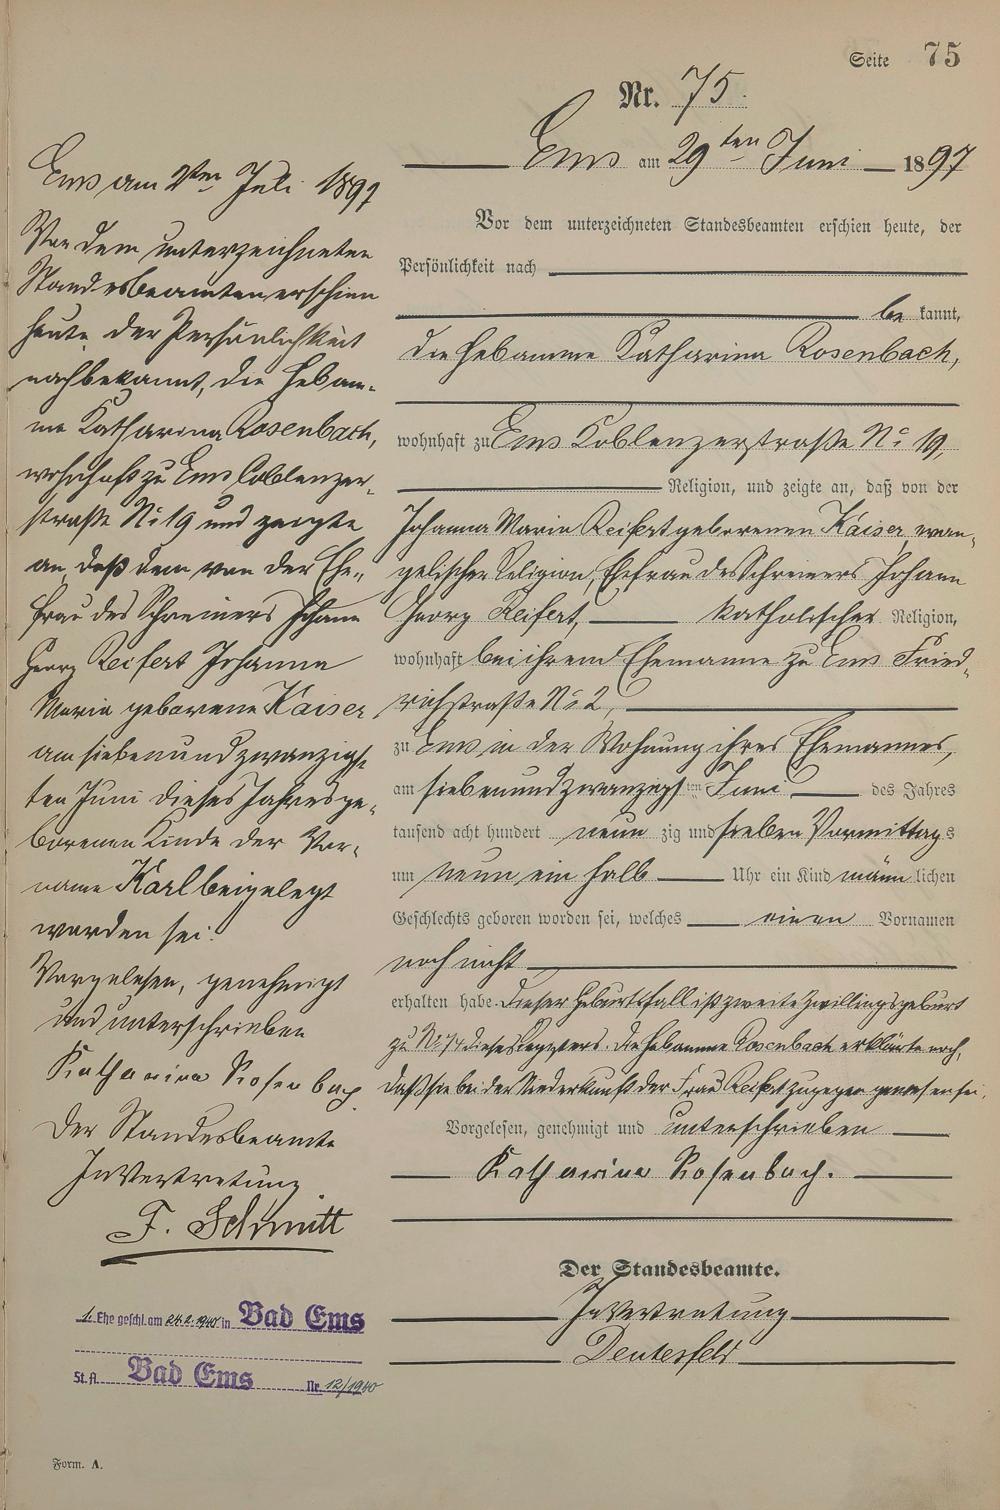 Seite 75
Nr. 75.
Ems am 29ten Juni 1897
Vor dem unterzeichneten Standesbeamten erschien heute, der
Persönlichkeit nach
be kannt,
die Hebamme Katharina Rosenbach,
wohnhaft zu Ems Coblenzerstraße No 19,
Religion, und zeigte an, daß von der
Johanna Maria Reifert geborenen Kaiser, evan-
gelischer Religion, Ehefrau des Schreiners Johann
Georg Reifert, katholischer Religion,
wohnhaft bei ihrem Ehemanne zu Ems Fried-
richstraße No 2,
zu Ems in der Wohnung ihres Ehemannes,
am siebenundzwanzigsten Juni des Jahres
tausend acht hundert neun zig und sieben Vormittags
um neun ein halb Uhr ein Kind männ lichen
Geschlechts geboren worden sei, welches einen Vornamen
noch nicht
erhalten habe. Dieser Geburtsfall ist zweite Zwillingsgeburt
zu No 74 dieses Registers. Die Hebamme Rosenbach erklärte noch,
daß sie bei der Niederkunft der Frau Reifert zugegen gewesen sei.
Vorgelesen, genehmigt und unterschrieben
Katharina Rosenbach.
Der Standesbeamte.
In Vertretung
Deutesfeld
Ems am 2ten Juli 1897
Vor dem unterzeichneten
Standesbeamten erschien
heute, der Persönlichkeit
nach bekannt, die Hebam-
me Katharina Rosenbach,
wohnhaft zu Ems Coblenzer-
straße No 19 und zeigte
an, daß dem von der Ehe-
frau des Schreiners Johann
Georg Reifert Johanna
Maria geborene Kaiser
am siebenundzwanzigs-
ten Juni dieses Jahres ge-
borenen Kinde der Vor-
name Karl beigelegt
worden sei.
Vorgelesen, genehmigt
und unterschrieben
Katharina Rosenbach
Der Standesbeamte
In Vertretung
F. Schmitt
1. Ehe geschl. am 24.2.1940 in Bad Ems
St. A. Bad Ems Nr. 12/1940
Form. A.